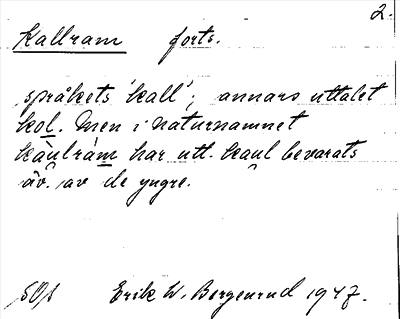 2.
Kallram forts.
språkets 'kall'; annars uttalet
kol. Men i naturnamnet
kàulrám har utt. kaul bevarats
äv. av de yngre.
SOS Erik W. Bergenrud 1947.